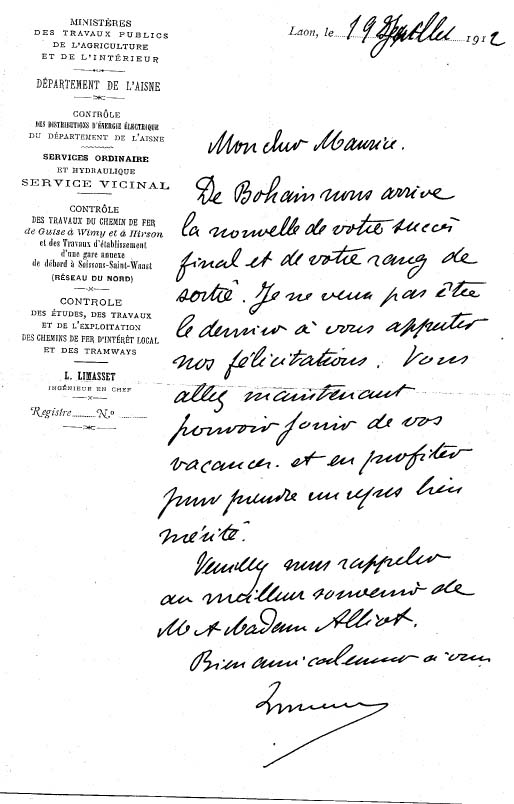 MINISTÈRES
DES TRAVAUX PUBLICS
DE L'AGRICULTURE
ET DE L'INTÉRIEUR
DÉPARTEMENT DE L'AISNE
CONTRÔLE
DES DISTRIBUTIONS D'ÉNERGIE ÉLECTRIQUE
DU DÉPARTEMENT DE L'AISNE
SERVICES ORDINAIRE
ET HYDRAULIQUE
SERVICE VICINAL
CONTRÔLE
DES TRAVAUX DU CHEMIN DE FER
de Guise à Wimy et à Hirson
et des Travaux d'établissement
d'une gare annexe
de débord à Soissons-Saint-Waast
(RÉSEAU DU NORD)
CONTROLE
DES ÉTUDES, DES TRAVAUX
ET DE L'EXPLOITATION
DES CHEMINS DE FER D'INTÉRÊT LOCAL
ET DES TRAMWAYS
L. LIMASSET
INGÉNIEUR EN CHEF
Registre N.º
Laon, le 19 Juillet 1912
Mon cher Maurice.
De Bohain nous arrive
la nouvelle de votre succès
final et de votre rang de
sortie. Je ne veux pas être
le dernier à vous apporter
nos félicitations. Vous
allez maintenant
pouvoir jouir de vos
vacances. et en profiter
pour prendre un repos bien
mérité.
Veuillez nous rappeler
au meilleur souvenir de
M et Madame Alliot.
Bien amicalement à vous